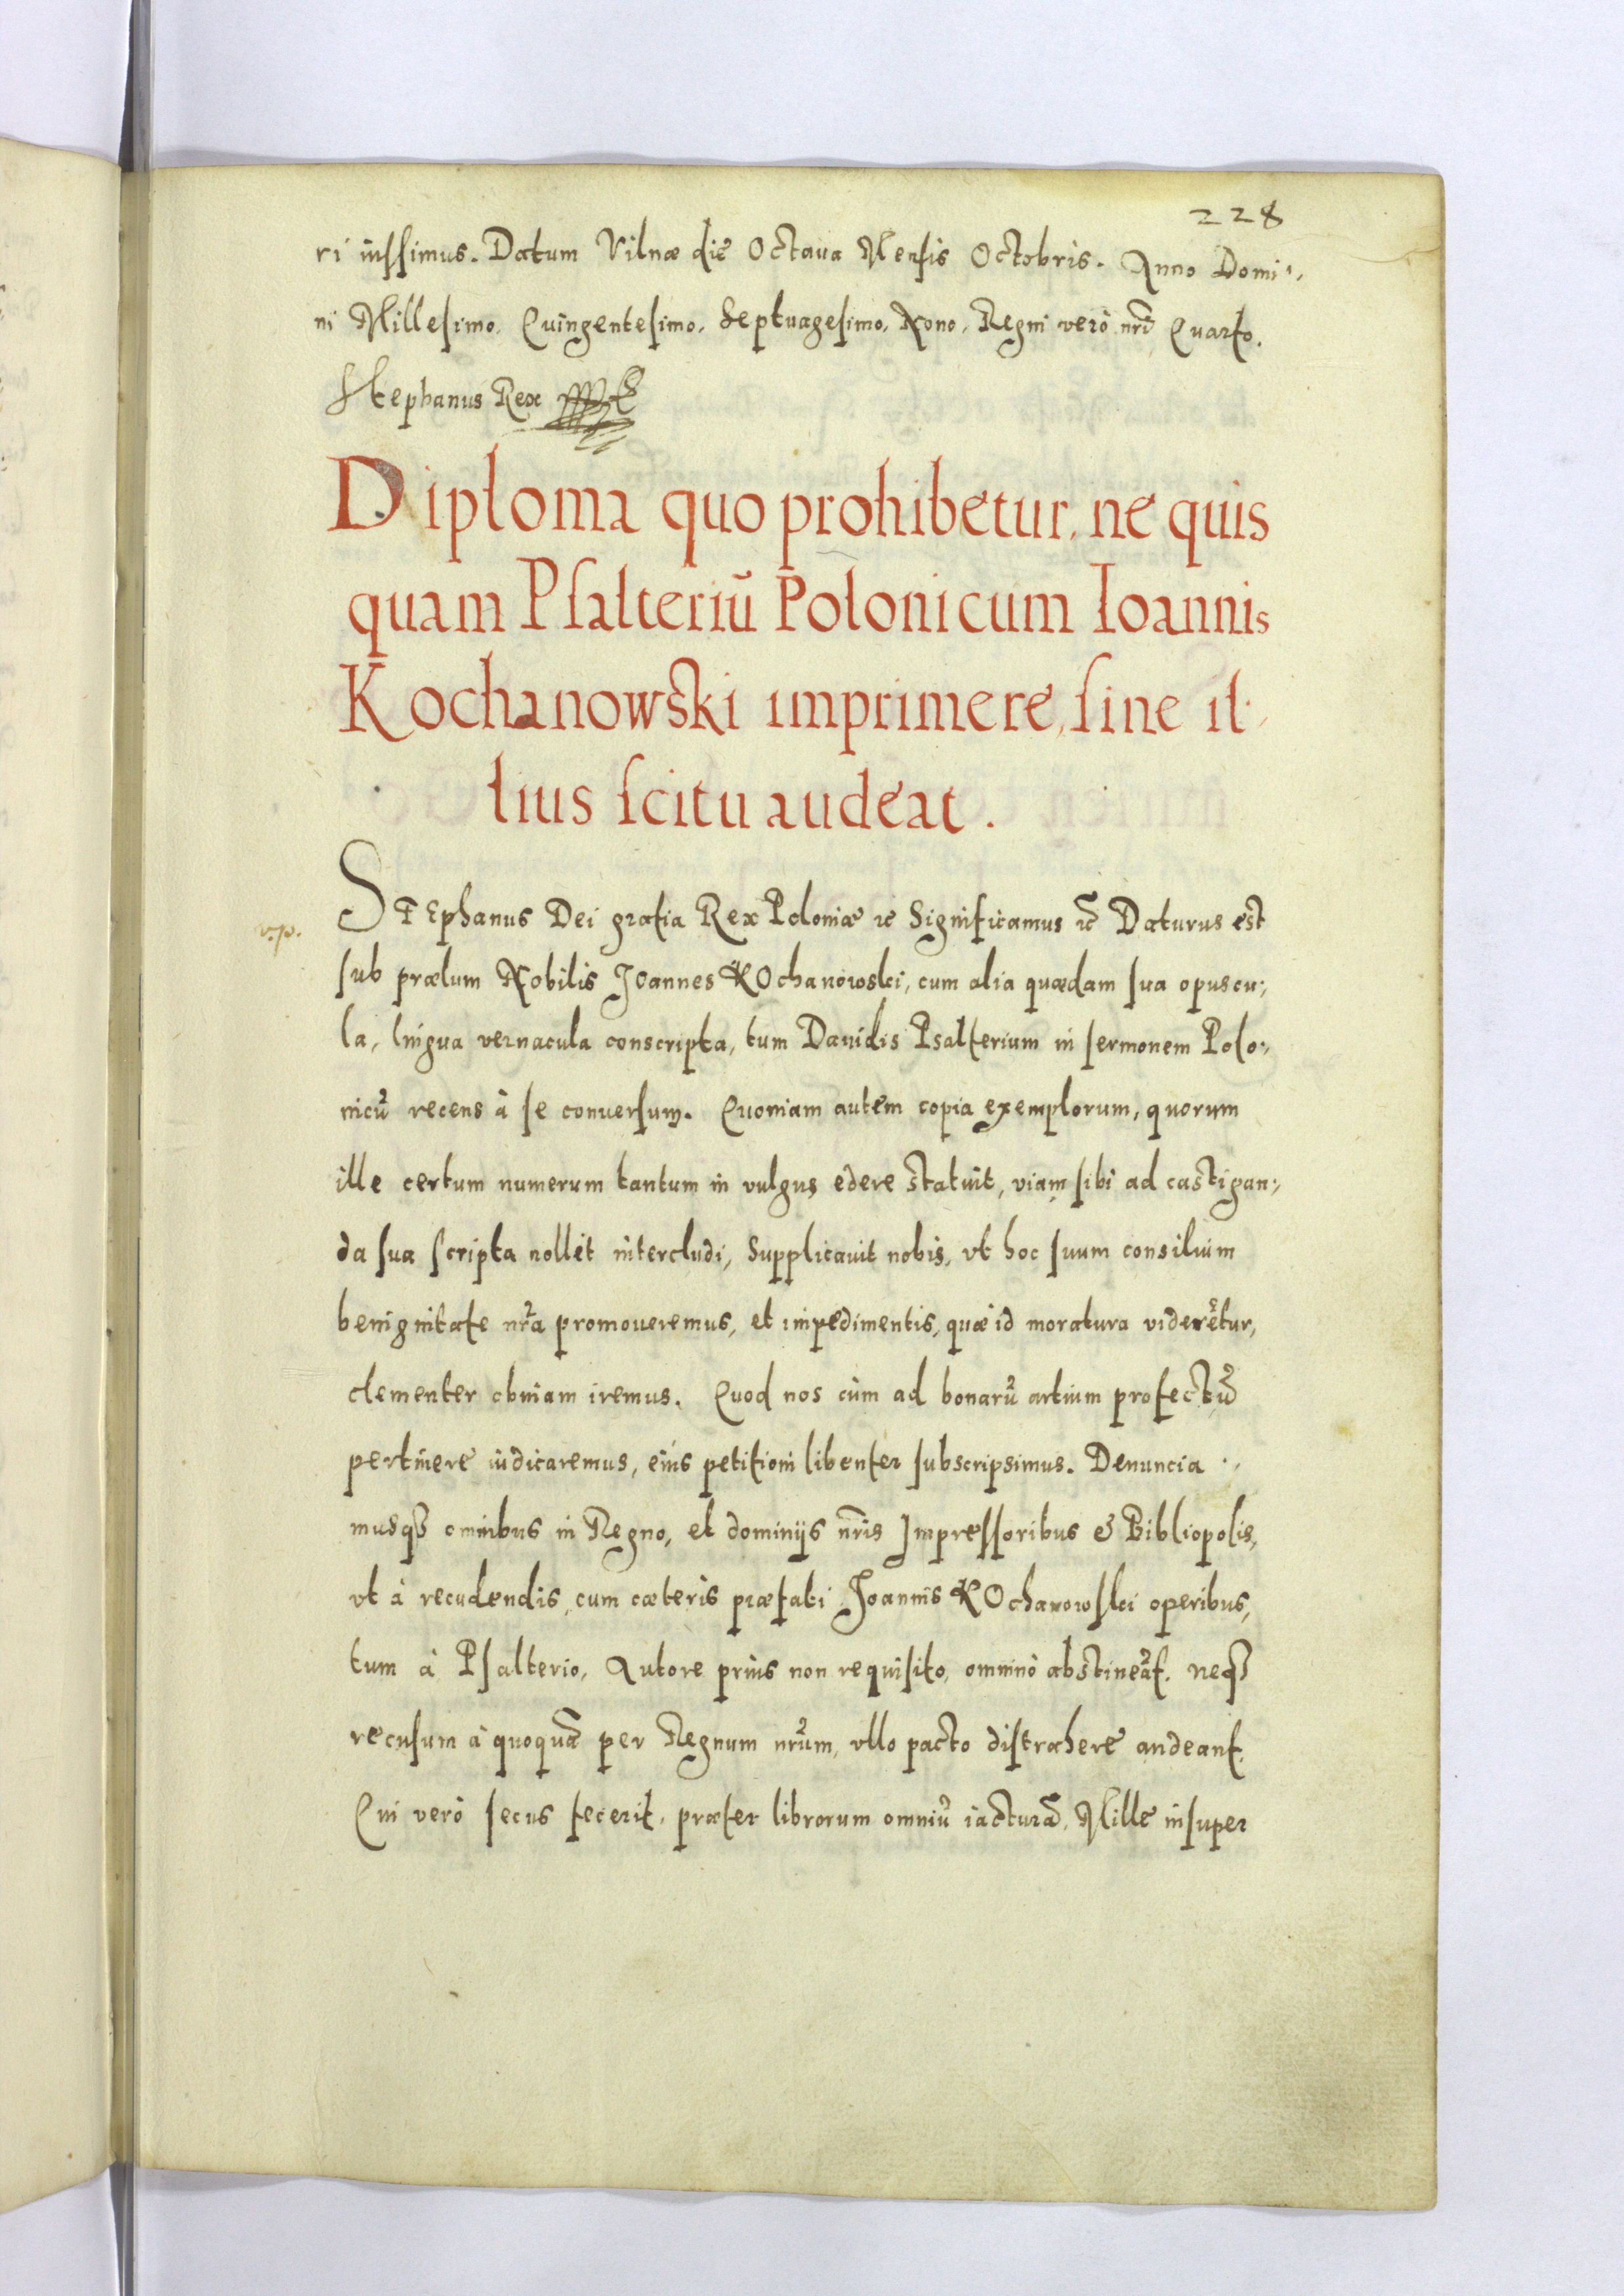 228
ri iussimus. Datum Vilnæ die Octaua Mensis Octobris. Anno Domi⸗
ni Millesimo. Quingentesimo. Septuagesimo. Nono. Regni verò nr̃i Quarto.
Stephanus Rex
Diploma quo prohibetur, ne quis
quam Psalteriũ Polonicum Ioannis
Kochanowski imprimere, sine il⸗
lius scitu audeat.
STEphanus Dei gratia Rex Poloniæ ꝛc Significamus ꝛc Daturus est
sub prælum Nobilis Ioannes KOchanowski, cum alia quædam sua opuscu⸗
la, lingua vernacula conscripta, tum Dauidis Psalterium in sermonem Polo⸗
nicũ recens à se conuersum. Quoniam autem copia exemplorum, quorum
ille certum numerum tantum in vulgus edere statuit, viam sibi ad castigan⸗
da sua scripta nollet intercludi, Supplicauit nobis, vt hoc suum consilium
benignitate nr̃a promoueremus, et impedimentis, quæ id moratura viderẽtur,
clementer obuiam iremus. Quod nos cùm ad bonarũ artium profectũ
pertinere iudicaremus, eius petitioni libenter subscripsimus. Denuncia⸗
musqꝫ omnibus in Regno, et dominijs nr̃is Impressoribus & Bibliopolis,
vt à recudendis, cum cæteris præfati Joannis KOchanowski operibus,
tum à Psalterio, Autore prius non requisito, omninò abstineãt. neqꝫ
recusum à quoquã per Regnum nr̃um, vllo pacto distrahere audeant.
Qui verò secus fecerit, præter librorum omniũ iacturã, Mille insuper